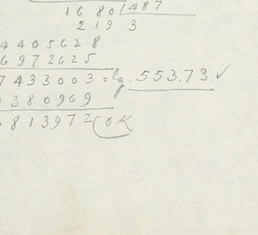 16 80 (487
2 19 3
4405628
6972625
7433003 = lg. 553.73 ✓
380969
813972 (OK